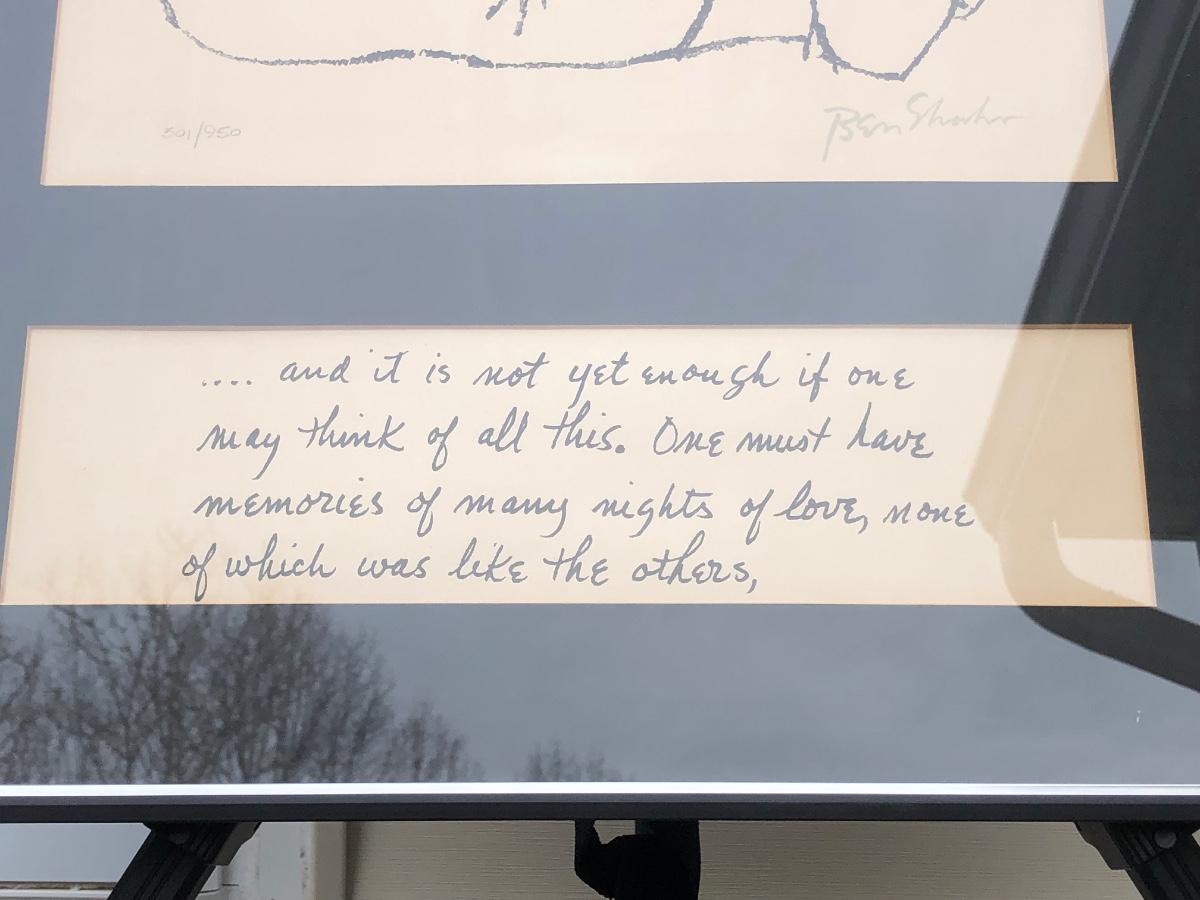 301/950
Ben Shahn
.... and it is not yet enough if one
may think of all this. One must have
memories of many nights of love, none
of which was like the others,